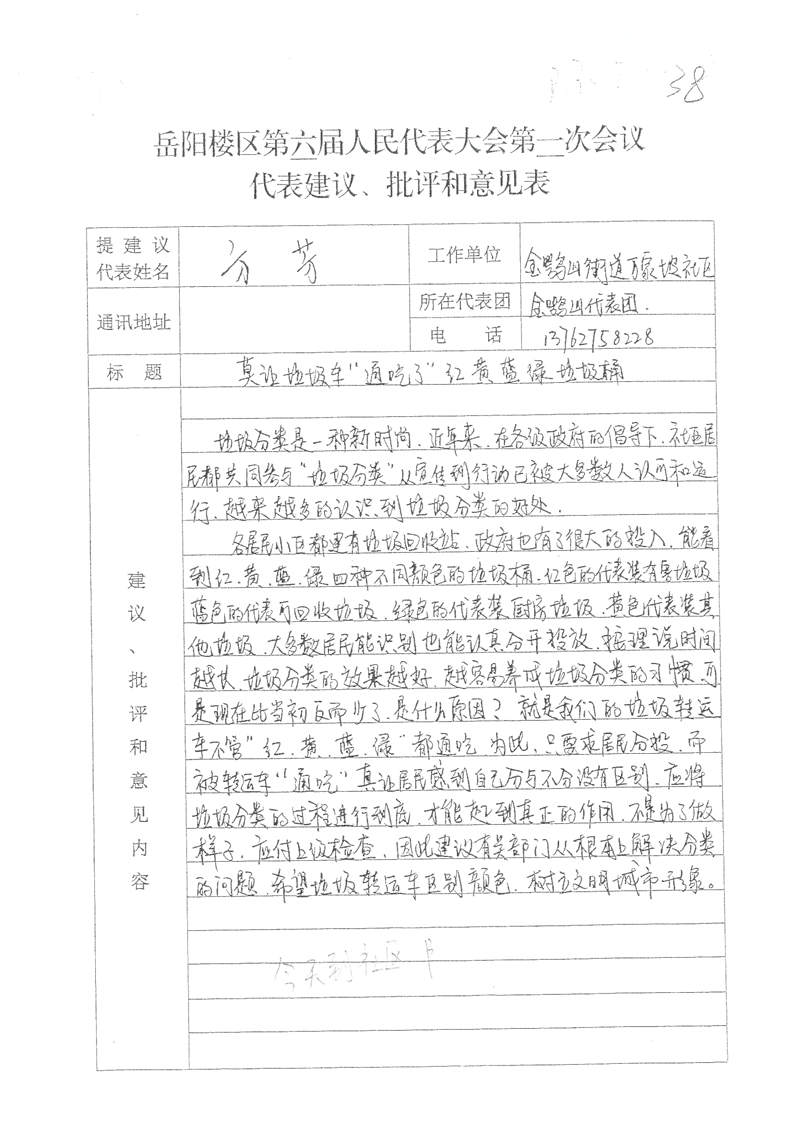 38
岳阳楼区第六届人民代表大会第一次会议
代表建议、批评和意见表
提建议代表姓名 方芳 工作单位 金鹗山街道万家坡社区
通讯地址 所在代表团 金鹗山代表团.
电话 13762758228
标题 莫让垃圾车“通吃了”红黄蓝绿垃圾桶
建议、批评和意见内容
垃圾分类是一种新时尚.近年来.在各级政府的倡导下.社区居
民都共同参与“垃圾分类”从宣传到行动已被大多数人认可和运
行.越来越多的认识到垃圾分类的好处.
各居民小区都建有垃圾回收站.政府也有了很大的投入.能看
到红.黄.蓝.绿四种不同颜色的垃圾桶.红色的代表装有害垃圾
蓝色的代表可回收垃圾.绿色的代表装厨房垃圾.黄色代表装其
他垃圾.大多数居民能识别也能认真分开投放.按理说时间
越长.垃圾分类的效果越好.越容易养成垃圾分类的习惯.可
是现在比当初反而少了.是什么原因?就是我们的垃圾转运
车不管“红.黄.蓝.绿”都通吃.为此.只要求居民分投.而
被转运车“通吃”莫让居民感到自己分与不分没有区别.应将
垃圾分类的过程进行到底.才能起到真正的作用.不是为了做
样子.应付上级检查.因此建议有关部门从根本上解决分类
的问题.希望垃圾转运车区别颜色.树立文明城市形象。
今天到社区